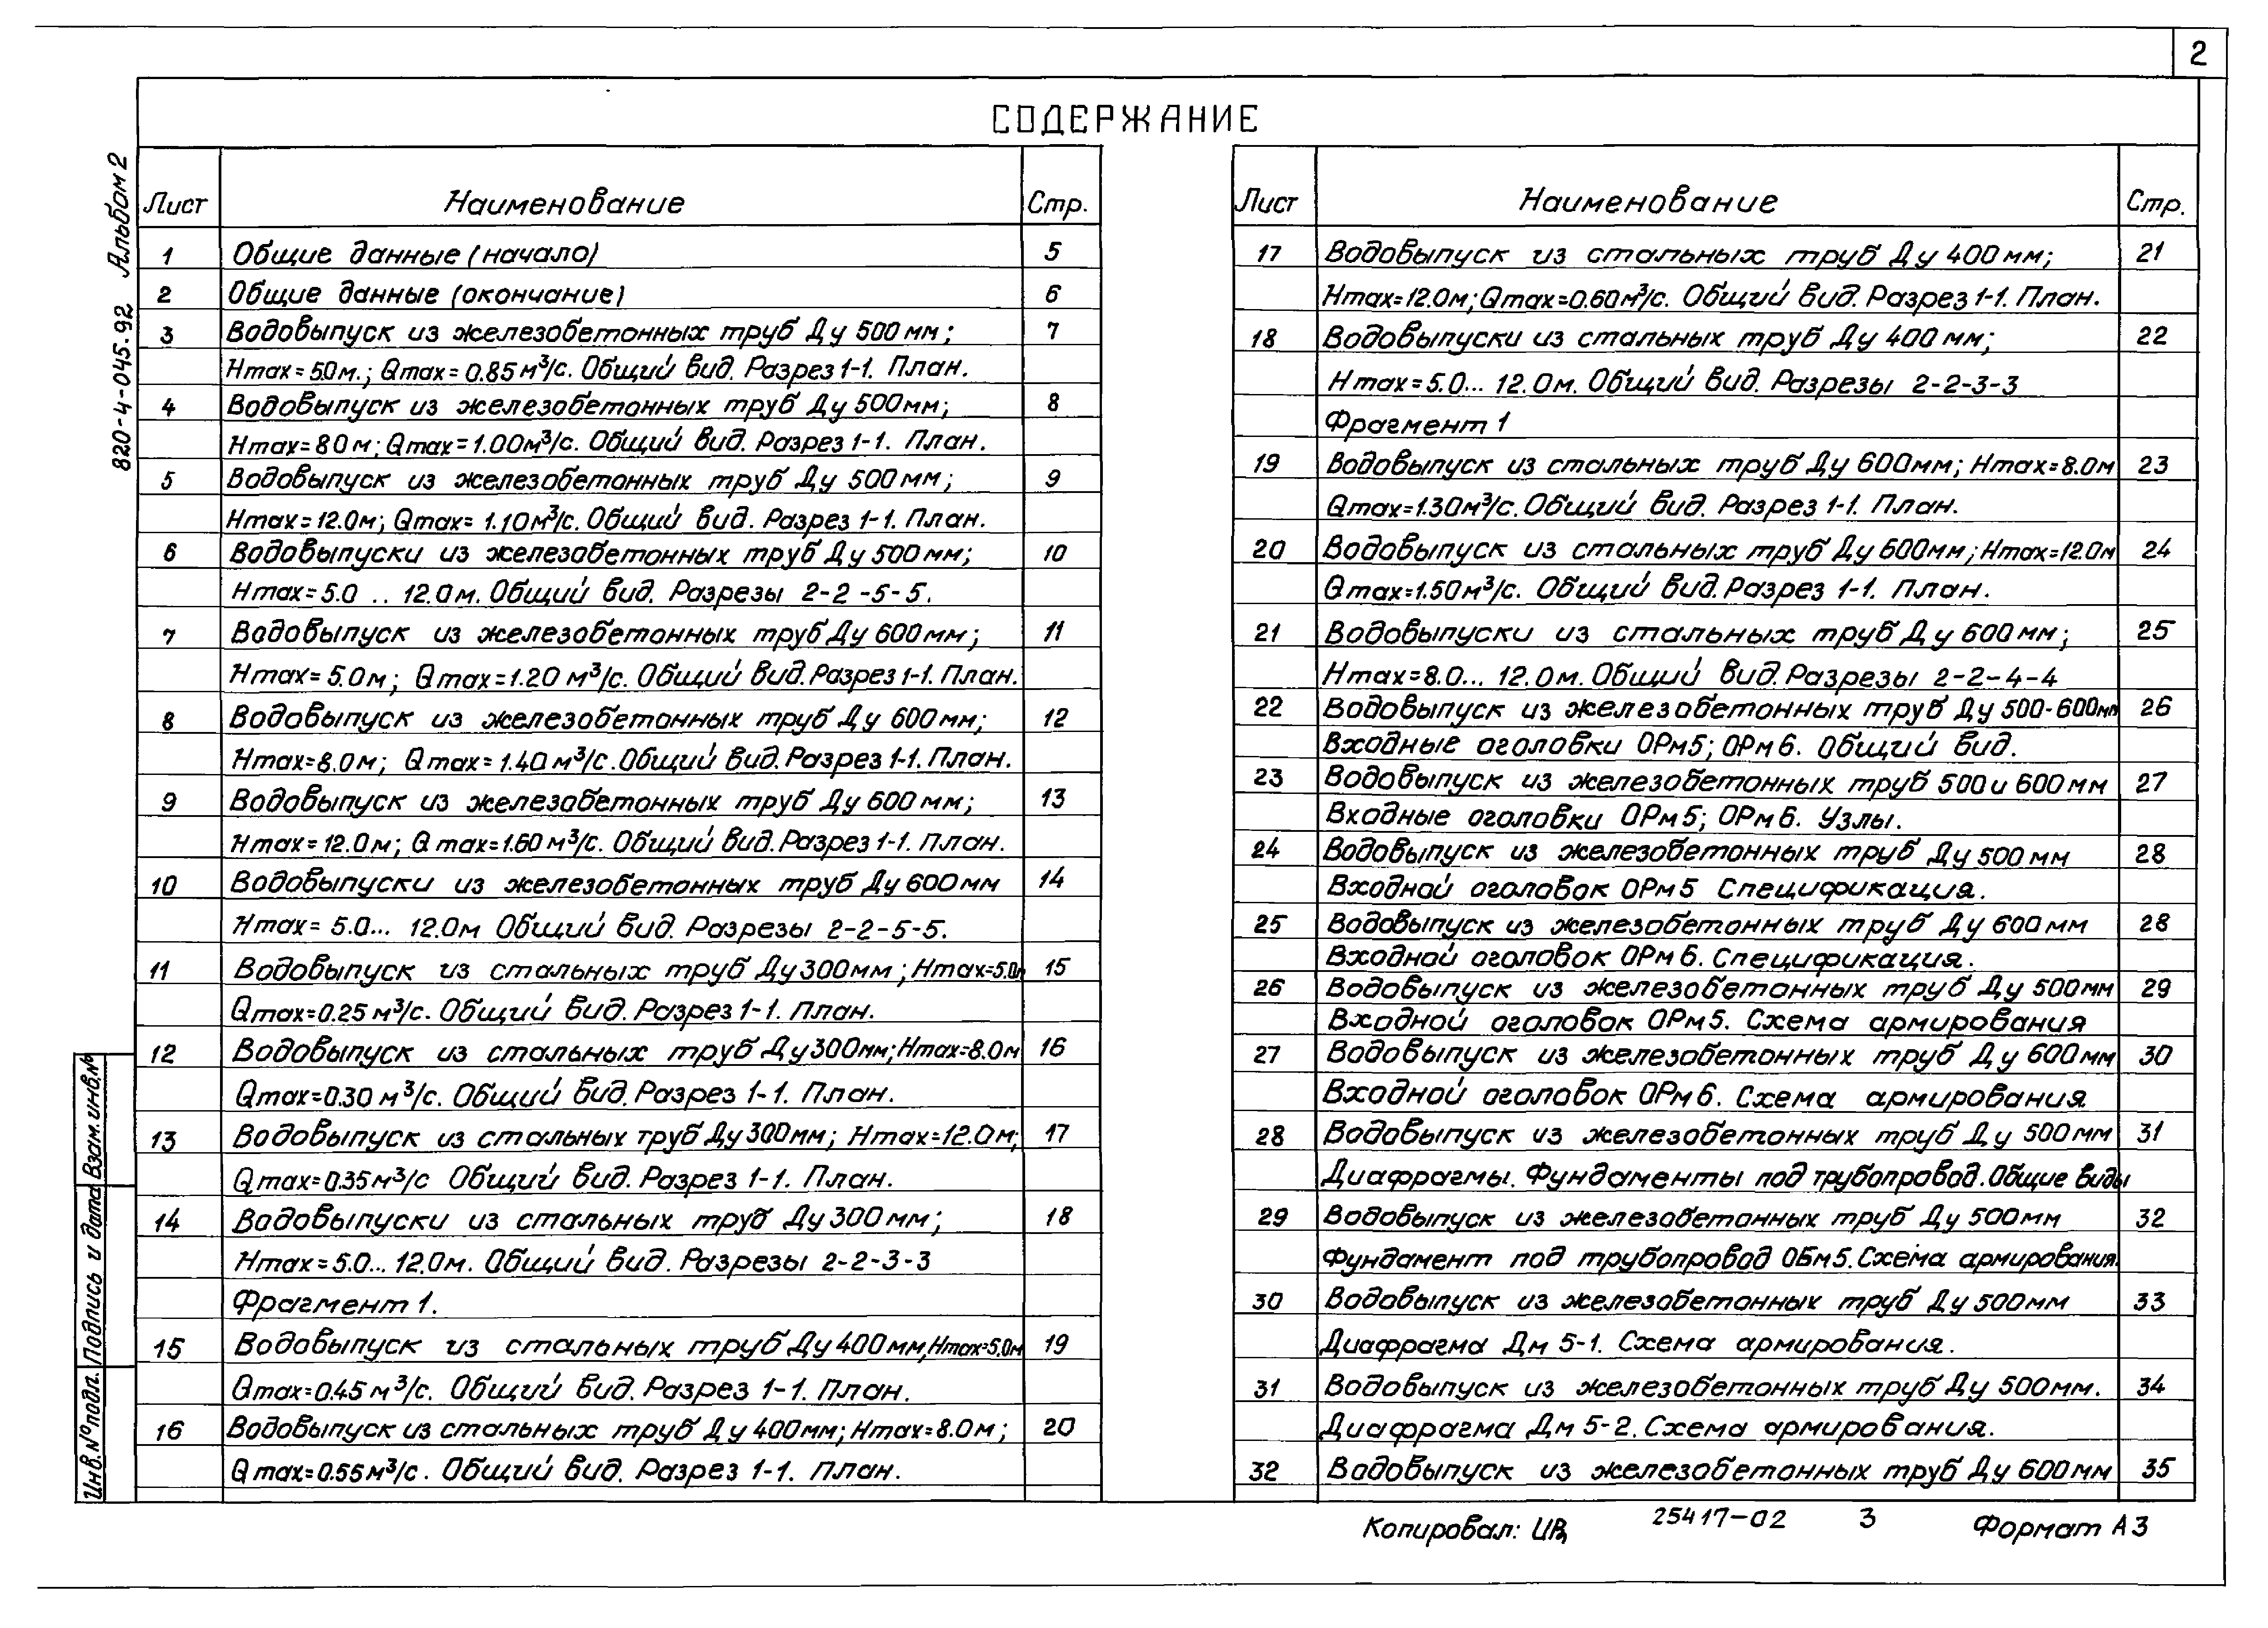 2
СОДЕРЖАНИЕ
820-4-045.92 Альбом 2
Лист Наименование Стр.
1 Общие данные (начало) 5
2 Общие данные (окончание) 6
3 Водовыпуск из железобетонных труб Ду 500 мм; 7
Hmax=5.0м.; Qmax=0.85м³/с. Общий вид. Разрез 1-1. План.
4 Водовыпуск из железобетонных труб Ду 500мм; 8
Hmax=8.0м; Qmax=1.00м³/с. Общий вид. Разрез 1-1. План.
5 Водовыпуск из железобетонных труб Ду 500 мм; 9
Hmax=12.0м; Qmax=1.10м³/с. Общий вид. Разрез 1-1. План.
6 Водовыпуски из железобетонных труб Ду 500 мм; 10
Hmax=5.0 .. 12.0м. Общий вид. Разрезы 2-2-5-5.
7 Водовыпуск из железобетонных труб Ду 600мм; 11
Hmax=5.0м; Qmax=1.20 м³/с. Общий вид. Разрез 1-1. План.
8 Водовыпуск из железобетонных труб Ду 600мм; 12
Hmax=8.0м; Qmax=1.40 м³/с. Общий вид. Разрез 1-1. План.
9 Водовыпуск из железобетонных труб Ду 600 мм; 13
Hmax=12.0м; Qmax=1.60 м³/с. Общий вид. Разрез 1-1. План.
10 Водовыпуски из железобетонных труб Ду 600мм 14
Hmax=5.0... 12.0м Общий вид. Разрезы 2-2-5-5.
11 Водовыпуск из стальных труб Ду 300мм; Hmax=5.0м 15
Qmax=0.25 м³/с. Общий вид. Разрез 1-1. План.
12 Водовыпуск из стальных труб Ду 300мм; Hmax=8.0м 16
Qmax=0.30 м³/с. Общий вид. Разрез 1-1. План.
13 Водовыпуск из стальных труб Ду 300мм; Hmax=12.0м; 17
Qmax=0.35м³/с Общий вид. Разрез 1-1. План.
14 Водовыпуски из стальных труб Ду 300 мм; 18
Hmax=5.0... 12.0м. Общий вид. Разрезы 2-2-3-3
Фрагмент 1.
15 Водовыпуск из стальных труб Ду 400мм, Hmax=5.0м 19
Qmax=0.45 м³/с. Общий вид. Разрез 1-1. План.
16 Водовыпуск из стальных труб Ду 400мм; Hmax=8.0м; 20
Qmax=0.55м³/с. Общий вид. Разрез 1-1. План.
Лист Наименование Стр.
17 Водовыпуск из стальных труб Ду 400мм; 21
Hmax=12.0м; Qmax=0.60м³/с. Общий вид. Разрез 1-1. План.
18 Водовыпуски из стальных труб Ду 400 мм; 22
Hmax=5.0... 12.0м. Общий вид. Разрезы 2-2-3-3
Фрагмент 1
19 Водовыпуск из стальных труб Ду 600мм; Hmax=8.0м 23
Qmax=1.30м³/с. Общий вид. Разрез 1-1. План.
20 Водовыпуск из стальных труб Ду 600мм; Hmax=12.0м 24
Qmax=1.50м³/с. Общий вид. Разрез 1-1. План.
21 Водовыпуски из стальных труб Ду 600 мм; 25
Hmax=8.0... 12.0м. Общий вид. Разрезы 2-2-4-4
22 Водовыпуск из железобетонных труб Ду 500-600мм 26
Входные оголовки ОРм5; ОРм6. Общий вид.
23 Водовыпуск из железобетонных труб 500 и 600 мм 27
Входные оголовки ОРм5; ОРм6. Узлы.
24 Водовыпуск из железобетонных труб Ду 500 мм 28
Входной оголовок ОРм5 Спецификация.
25 Водовыпуск из железобетонных труб Ду 600мм 28
Входной оголовок ОРм6. Спецификация.
26 Водовыпуск из железобетонных труб Ду 500мм 29
Входной оголовок ОРм5. Схема армирования
27 Водовыпуск из железобетонных труб Ду 600мм 30
Входной оголовок ОРм6. Схема армирования
28 Водовыпуск из железобетонных труб Ду 500мм 31
Диафрагмы. Фундаменты под трубопровод. Общие виды
29 Водовыпуск из железобетонных труб Ду 500мм 32
Фундамент под трубопровод ОБм5. Схема армирования.
30 Водовыпуск из железобетонных труб Ду 500мм 33
Диафрагма Дм 5-1. Схема армирования.
31 Водовыпуск из железобетонных труб Ду 500мм. 34
Диафрагма Дм 5-2. Схема армирования.
32 Водовыпуск из железобетонных труб Ду 600мм 35
Взам. инв.№
Подпись и дата
Инв. № подл.
Копировал: 25417-02 3 Формат А3